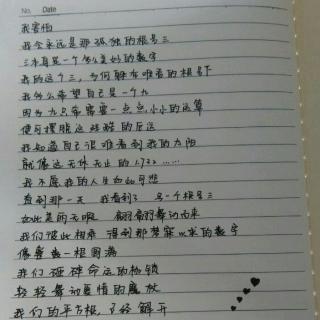 No.  Date
我害怕
我会永远是那孤独的根号三
三本身是一个多么美好的数字
我的这个三，为何躲在难看的根号下
我多么希望自己是一个九
因为九只需要一点点小小的运算
便可摆脱这残酷的厄运
我知道自己很难看到我的太阳
就像这无休无止的1.732……
我不愿我的人生如此可悲
直到那一天 我看到了 另一个根号三
如此美丽无瑕 翩翩舞动而来
我们彼此相乘 得到那梦寐以求的数字
像整数一样圆满
我们砸碎命运的枷锁
轻轻舞动爱情的魔杖
我们的平方根，已经解开